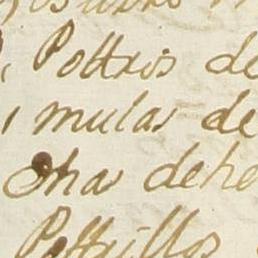 Pottris de
mulas de
Otras dehe
Pottrillos